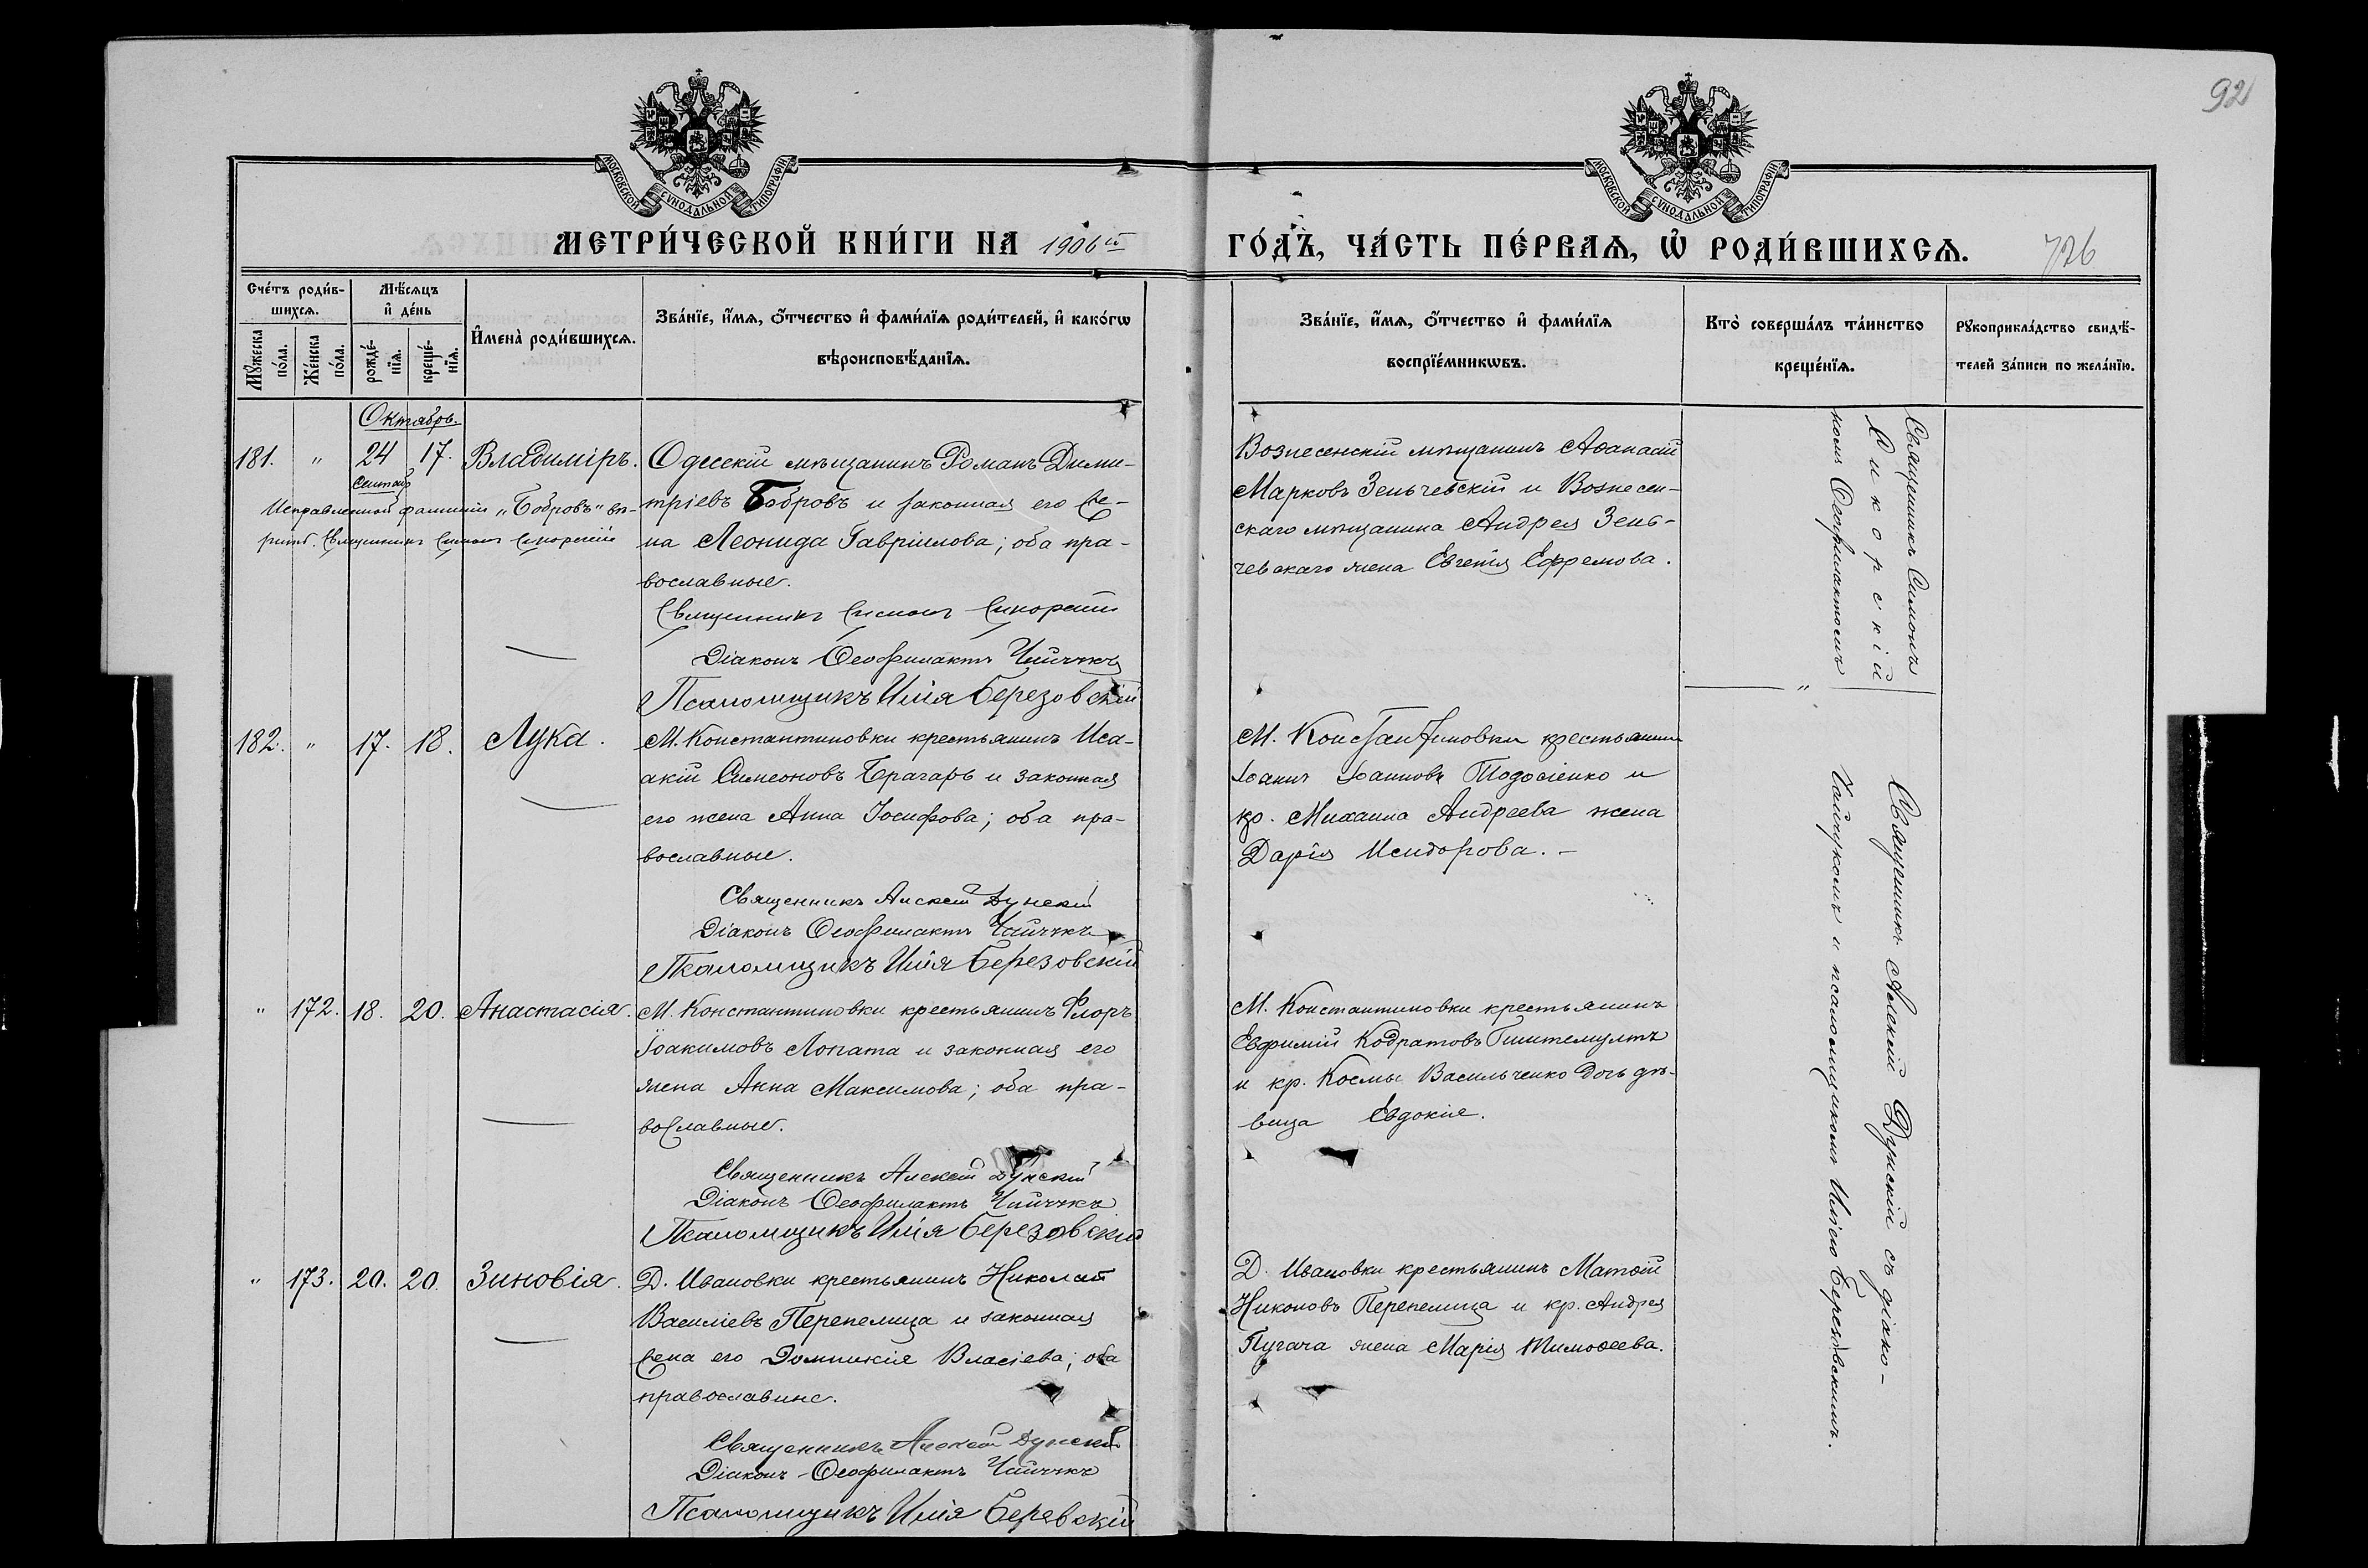 92
МОСКОВСКОЙ СУНОДАЛЬНОЙ ТИПОГРАФІИ
МОСКОВСКОЙ СУНОДАЛЬНОЙ ТИПОГРАФІИ
МЕТРИ́ЧЕСКОЙ КНИ́ГИ НА 1906й
ГО́ДЪ, ЧА́СТЬ ПЕ́РВАѦ, Ѡ҆ РОДИ́ВШИХСѦ. 726
Сче́тъ роди́в-
шихсѧ.
Мѣ́сѧцъ
и҆ де́нь
Мꙋ́жеска
по́ла.
Же́нска
по́ла.
рожде́-
нїѧ.
креще́-
нїѧ.
И҆мена̀ роди́вшихсѧ.
Зва́нїе, и҆́мѧ, ѻ҆́тчество и҆ фами́лїѧ роди́телей, и҆ како́гѡ
вѣроисповѣ́данїѧ.
Зва́нїе, и҆́мѧ, ѻ҆́тчество и҆ фами́лїѧ
воспрїе́мникѡвъ.
Кто̀ соверша́лъ та́инство
креще́нїѧ.
Рꙋкоприкла́дство свидѣ́-
телей за́писи по жела́нїю.
Октябрь.
181. " 24 17. Владиміръ.
Сентяб
Исправленной фамиліи „Бобровъ" вѣ-
рить. Священникъ Симонъ Сикорскій
Одесскій мѣщанинъ Романъ Дими-
тріевъ Бобровъ и законная его же-
на Леонида Гавріилова; оба пра-
вославные.
Священникъ Симонъ Сикорскій
Діаконъ Ѳеофилактъ Чайчукъ
Псаломщикъ Илія Березовскій
Вознесенскій мѣщанинъ Аѳанасій
Марковъ Зеньчевскій и Вознесен-
скаго мѣщанина Андрея Зень-
чевскаго жена Евгенія Ефремова.
Священникъ Симонъ
Сикорскій
номъ Ѳеофилактомъ
"
182. " 17. 18. Лука.
М. Константиновки крестьянинъ Иса-
акій Симеоновъ Брагарь и законная
его жена Анна Іосифова; оба пра-
вославные.
Священникъ Алексій Дунскій
Діаконъ Ѳеофилактъ Чайчукъ
Псаломщикъ Илія Березовскій
М. Константиновки крестьянинъ
Іоаннъ Іоанновъ Тодосіенко и
кр. Михаила Андреева жена
Дарія Исидорова. –
Священникъ Алексій Дунскій съ діако-
Чайчукомъ и псаломщикомъ Иліею Березовскимъ.
" 172. 18. 20. Анастасія.
М. Константиновки крестьянинъ Флоръ
Іоакимовъ Лопата и законная его
жена Анна Максимова; оба пра-
вославные.
Священникъ Алексій Дунскій
Діаконъ Ѳеофилактъ Чайчукъ
Псаломщикъ Илія Березовскій
М. Константиновки крестьянинъ
Евфимій Кодратовъ
и кр. Космы Васильченко дочь дѣ-
вица Евдокія.
" 173. 20. 20. Зиновія.
Д. Ивановки крестьянинъ Николай
Василіевъ Перепелица и законная
жена его Домникія Власіева; оба
православние.
Священникъ Алексій Дунскій
Діаконъ Ѳеофилактъ Чайчукъ
Псаломщикъ Илія Беревскій
Д. Ивановки крестьянинъ Матѳій
Никоновъ Перепелица и кр. Андрея
Пугача жена Марія Тимоѳеева.